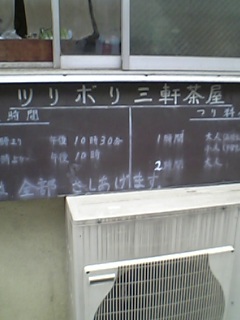 ツリボリ三軒茶屋
時間 つり料
時より 午後10時30分 1時間 大人
時より 午後10時 小人
2時間 大人
全部 さしあげます。